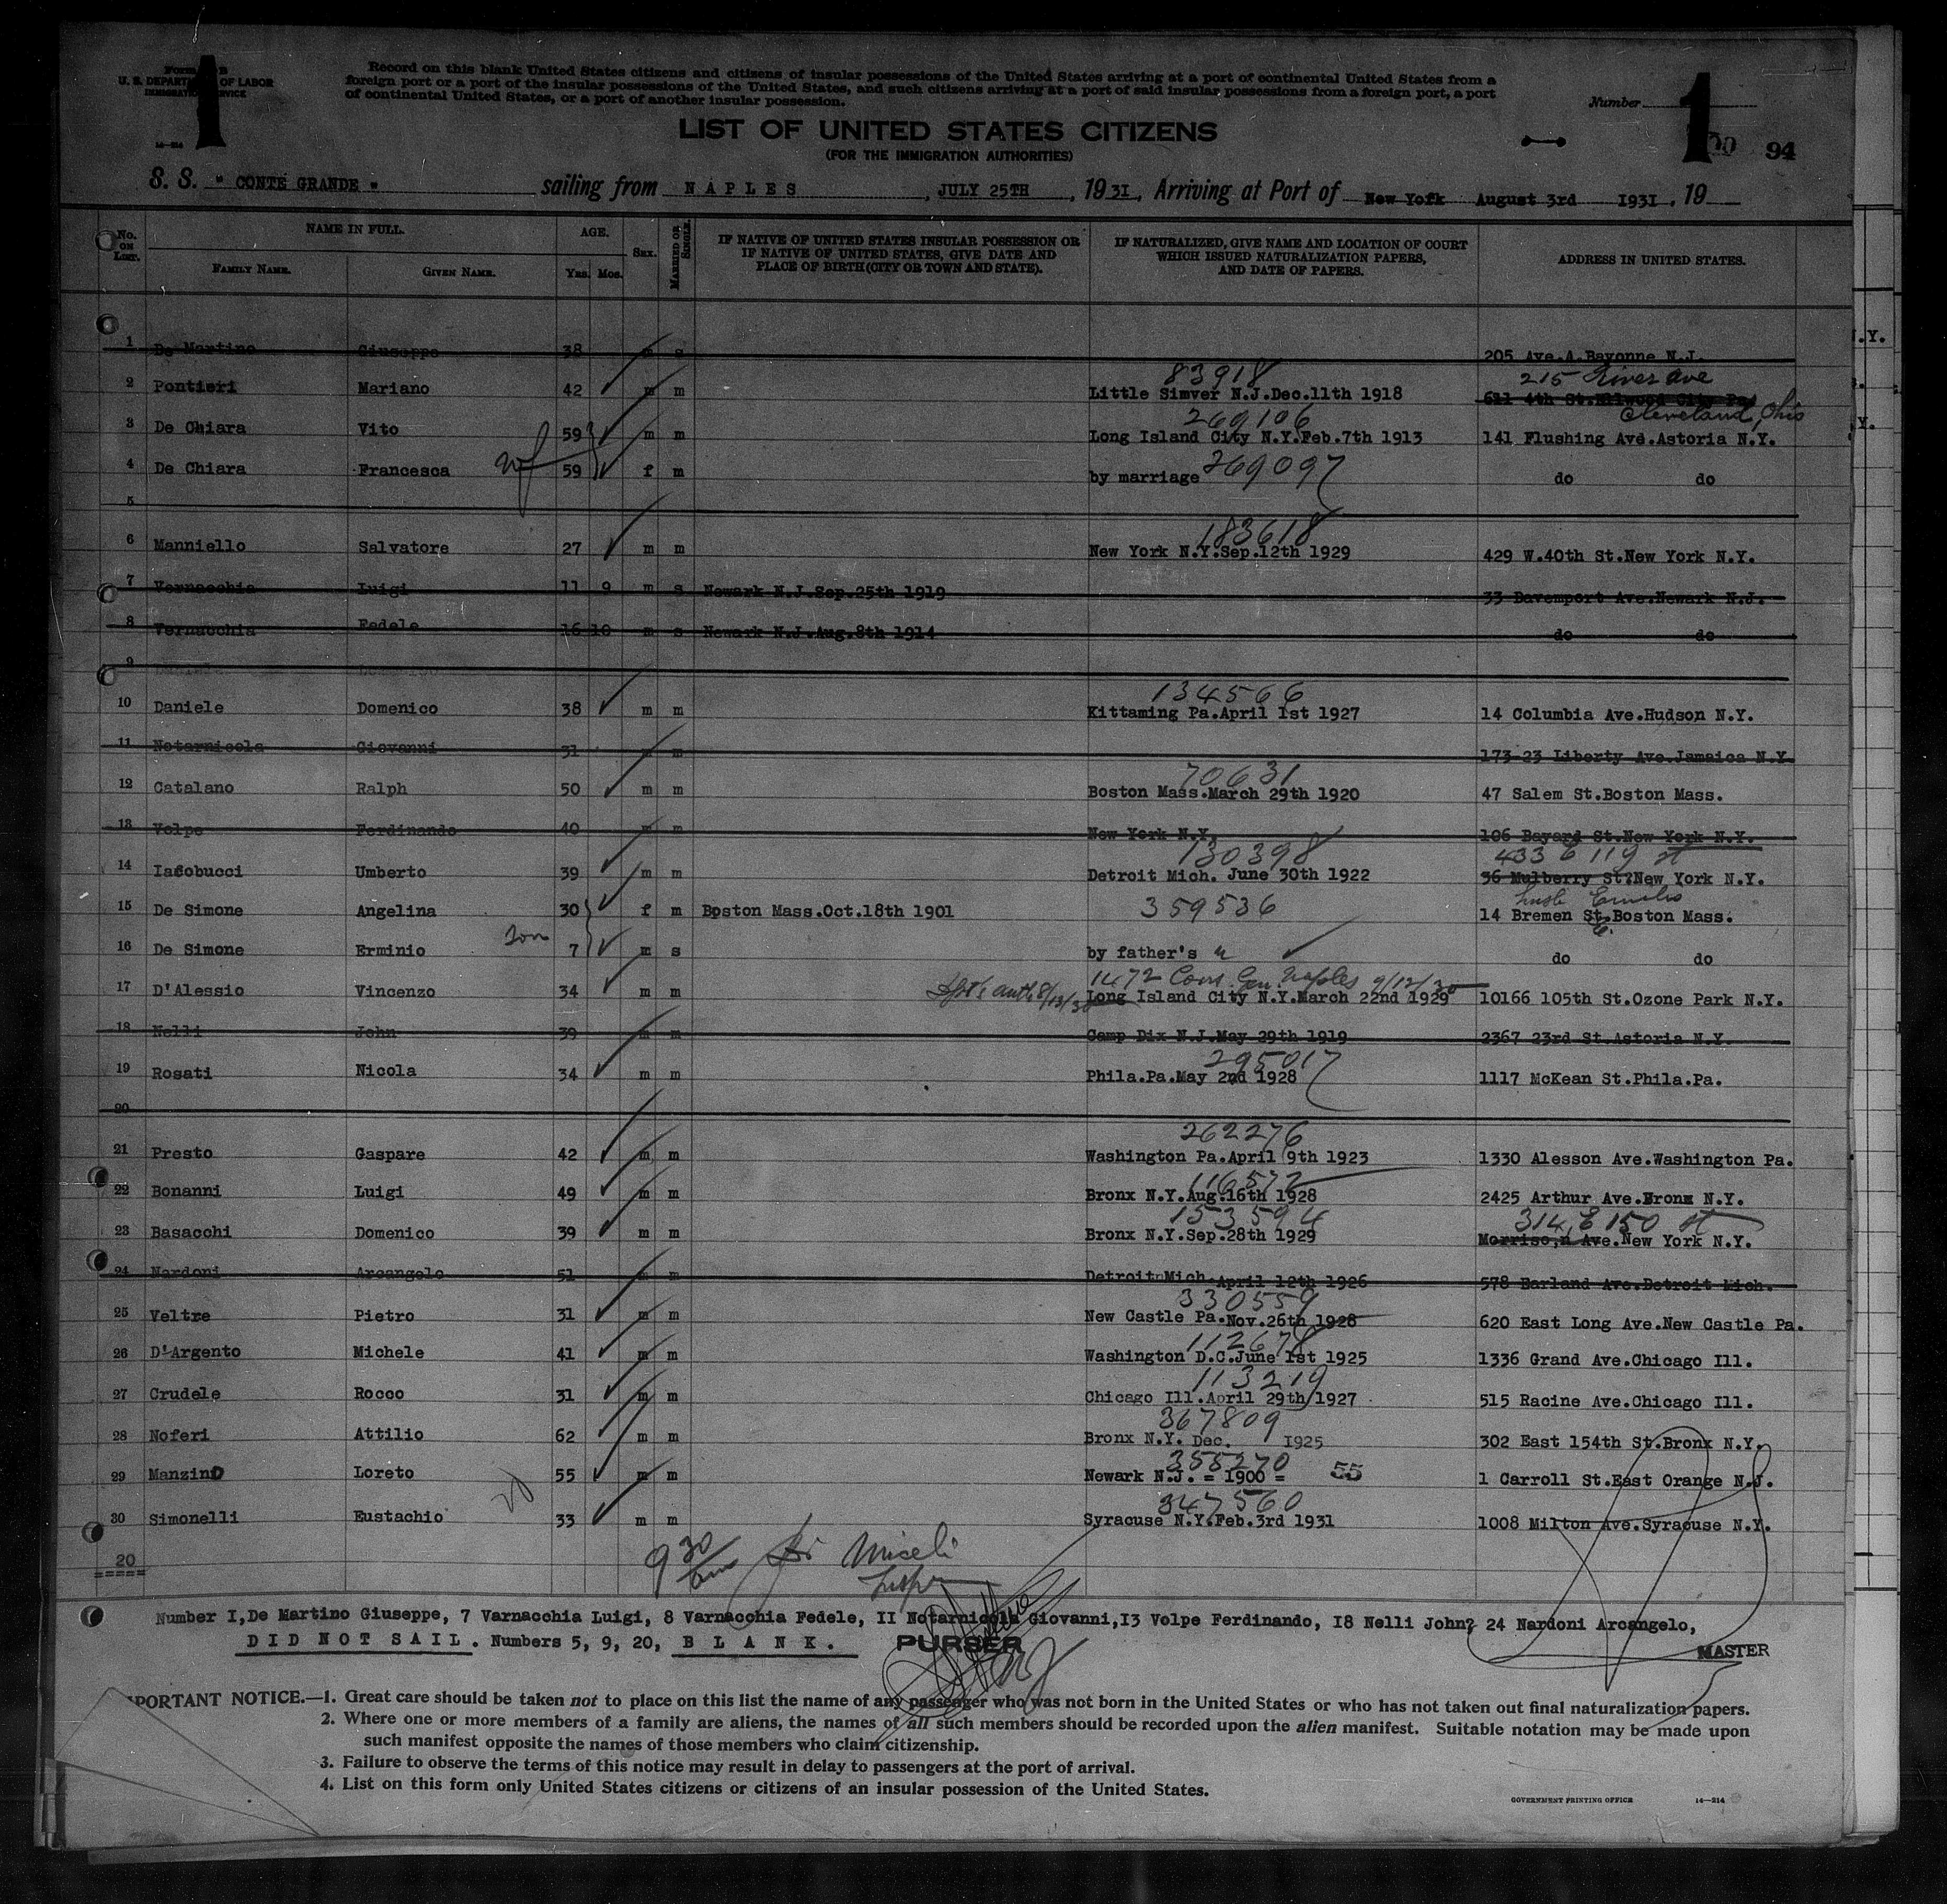 1
Form 630 B
U. S. DEPARTMENT OF LABOR
IMMIGRATION SERVICE
14—214
Record on this blank United States citizens and citizens of insular possessions of the United States arriving at a port of continental United States from a
foreign port or a port of the insular possessions of the United States, and such citizens arriving at a port of said insular possessions from a foreign port, a port
of continental United States, or a port of another insular possession.
Number 1
94
LIST OF UNITED STATES CITIZENS
(FOR THE IMMIGRATION AUTHORITIES)
S. S. " CONTE GRANDE " sailing from NAPLES, JULY 25TH, 1931, Arriving at Port of New York August 3rd 1931, 19
No. ON LIST. NAME IN FULL. AGE. SEX. MARRIED OR SINGLE. IF NATIVE OF UNITED STATES INSULAR POSSESSION OR IF NATIVE OF UNITED STATES, GIVE DATE AND PLACE OF BIRTH (CITY OR TOWN AND STATE). IF NATURALIZED, GIVE NAME AND LOCATION OF COURT WHICH ISSUED NATURALIZATION PAPERS, AND DATE OF PAPERS. ADDRESS IN UNITED STATES.
FAMILY NAME. GIVEN NAME. Yrs. Mos.
1 De Martino Giuseppe 38 m s 205 Ave.A.Bayonne N.J.
83918 215 River ave
2 Pontieri Mariano 42 m m Little Simver N.J.Dec.11th 1918 611 4th St.Ellwood City Pa.
Cleveland, Ohio
269106
3 De Chiara Vito 59 m m Long Island City N.Y.Feb.7th 1913 141 Flushing Ave.Astoria N.Y.
4 De Chiara Francesca wf 59 f m by marriage 269097 do do
5
183618
6 Manniello Salvatore 27 m m New York N.Y.Sep.12th 1929 429 W.40th St.New York N.Y.
7 Vernacchia Luigi 11 9 m s Newark N.J.Sep.25th 1919 33 Davemport Ave.Newark N.J.
8 Vernacchia Fedele 16 10 m s Newark N.J.Aug.8th 1914 do do
9
134566
10 Daniele Domenico 38 m m Kittaming Pa.April 1st 1927 14 Columbia Ave.Hudson N.Y.
11 Notarnicola Giovanni 31 m m 173-23 Liberty Ave.Jamaica N.Y.
70631
12 Catalano Ralph 50 m m Boston Mass.March 29th 1920 47 Salem St.Boston Mass.
13 Volpe Ferdinando 40 m m New York N.Y. 106 Bayard St.New York N.Y.
130398 433 E 119 st
14 Iacobucci Umberto 39 m m Detroit Mich. June 30th 1922 36 Mulberry St.New York N.Y.
15 De Simone Angelina 30 f m Boston Mass.Oct.18th 1901 359536 14 Bremen St.Boston Mass.
16 De Simone Erminio son 7 m s by father's do do
1472 Con. Gen. Naples 9/12/30
17 D'Alessio Vincenzo 34 m m Long Island City N.Y.March 22nd 1929 10166 105th St.Ozone Park N.Y.
18 Nelli John 39 m m Camp Dix N.J.May 29th 1919 2367 23rd St.Astoria N.Y.
295017
19 Rosati Nicola 34 m m Phila.Pa.May 2nd 1928 1117 McKean St.Phila.Pa.
20
262276
21 Presto Gaspare 42 m m Washington Pa.April 9th 1923 1330 Alesson Ave.Washington Pa.
116572
22 Bonanni Luigi 49 m m Bronx N.Y.Aug.16th 1928 2425 Arthur Ave.Bronx N.Y.
153594 314 E 150 st
23 Basacchi Domenico 39 m m Bronx N.Y.Sep.28th 1929 Morrison Ave.New York N.Y.
24 Nardoni Arcangelo 51 m m Detroit Mich.April 12th 1926 578 Harland Ave.Detroit Mich.
330559
25 Veltre Pietro 31 m m New Castle Pa.Nov.26th 1928 620 East Long Ave.New Castle Pa.
112678
26 D'Argento Michele 41 m m Washington D.C.June 1st 1925 1336 Grand Ave.Chicago Ill.
113219
27 Crudele Rocco 31 m m Chicago Ill.April 29th 1927 515 Racine Ave.Chicago Ill.
367809
28 Noferi Attilio 62 m m Bronx N.Y. Dec. 1925 302 East 154th St.Bronx N.Y.
355270
29 Manzino Loreto 55 m m Newark N.J. = 1900 = 55 1 Carroll St.East Orange N.J.
347560
30 Simonelli Eustachio 33 m m Syracuse N.Y.Feb.3rd 1931 1008 Milton Ave.Syracuse N.Y.
20
=====
9 30 am Miceli
Insp
Number I,De Martino Giuseppe, 7 Varnacchia Luigi, 8 Varnacchia Fedele, II Notarnicola Giovanni,I3 Volpe Ferdinando, I8 Nelli John? 24 Nardoni Arcangelo,
DID NOT SAIL. Numbers 5, 9, 20, BLANK.
PURSER
MASTER
IMPORTANT NOTICE.—1. Great care should be taken not to place on this list the name of any passenger who was not born in the United States or who has not taken out final naturalization papers.
2. Where one or more members of a family are aliens, the names of all such members should be recorded upon the alien manifest. Suitable notation may be made upon
such manifest opposite the names of those members who claim citizenship.
3. Failure to observe the terms of this notice may result in delay to passengers at the port of arrival.
4. List on this form only United States citizens or citizens of an insular possession of the United States.
GOVERNMENT PRINTING OFFICE 14—214